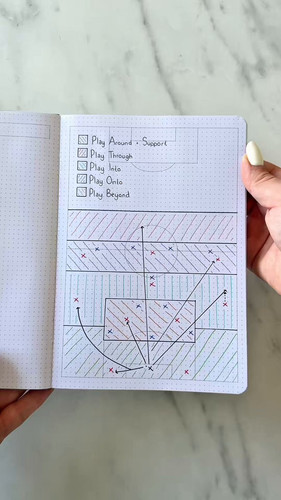 Play Around + Support
Play Through
Play Into
Play Onto
Play Beyond